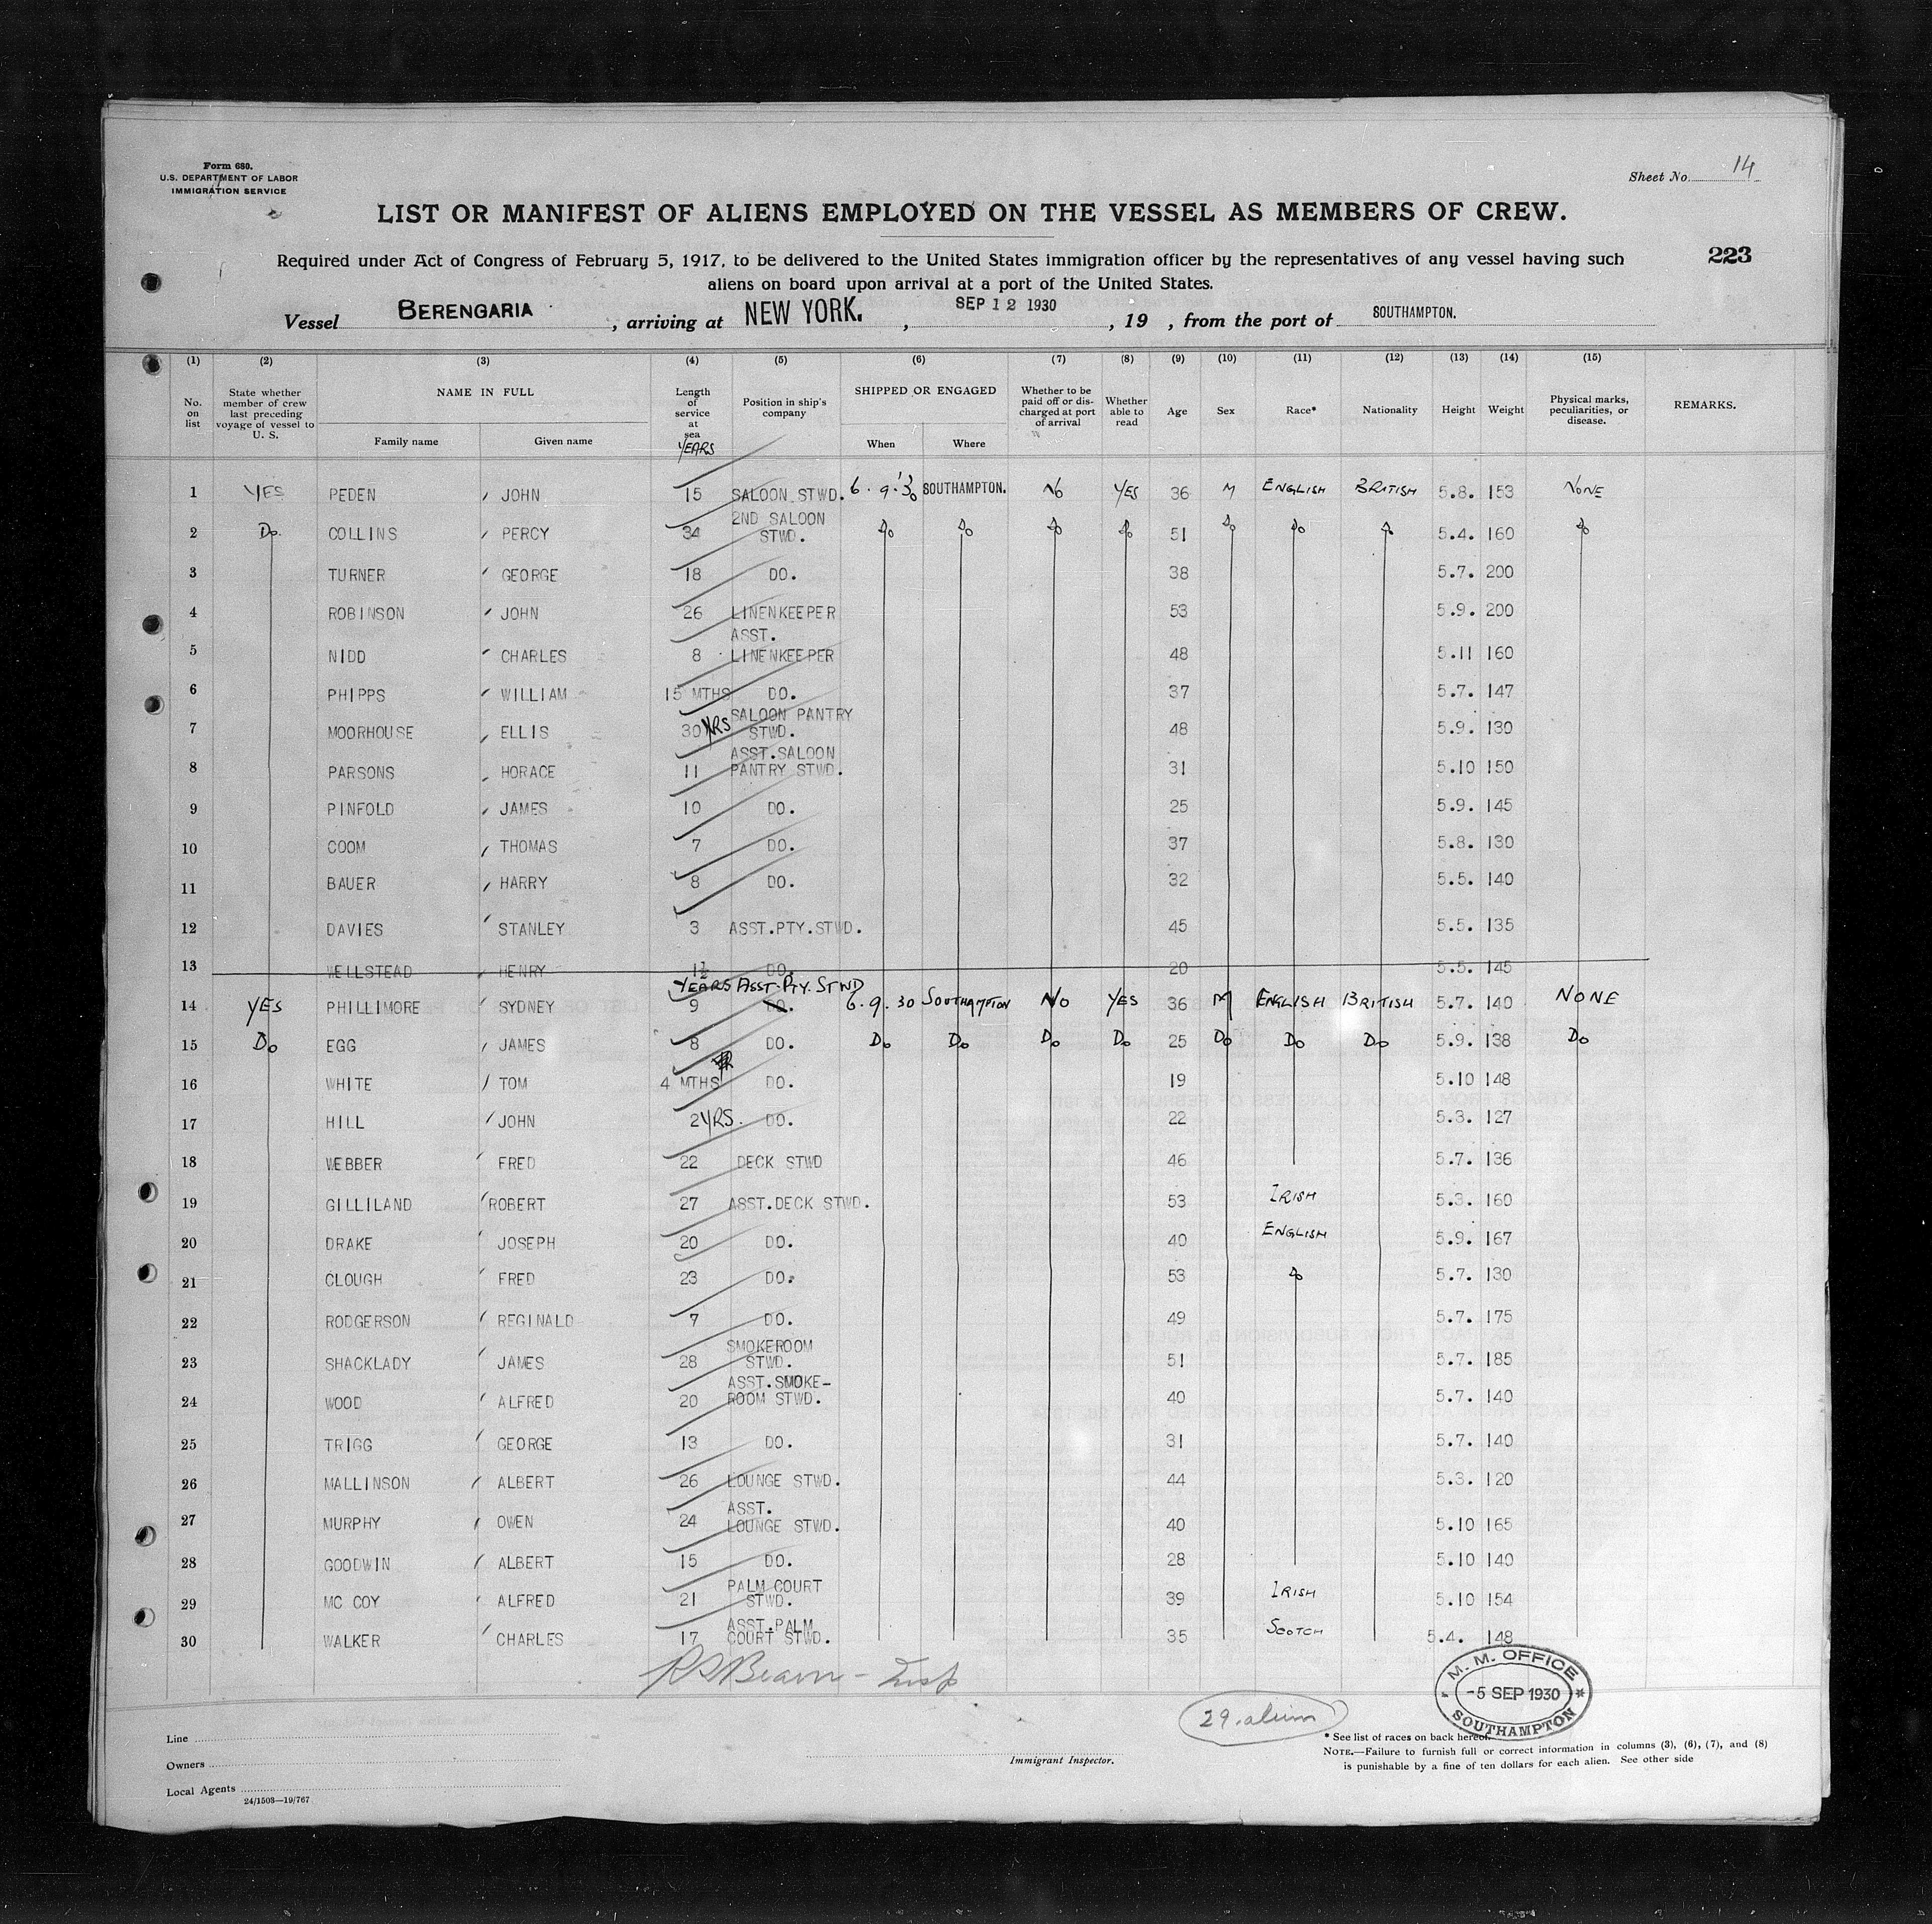 Form 680.
U.S. DEPARTMENT OF LABOR
IMMIGRATION SERVICE
Sheet No. 14
LIST OR MANIFEST OF ALIENS EMPLOYED ON THE VESSEL AS MEMBERS OF CREW.
223
Required under Act of Congress of February 5, 1917, to be delivered to the United States immigration officer by the representatives of any vessel having such
aliens on board upon arrival at a port of the United States.
Vessel BERENGARIA, arriving at NEW YORK., SEP 12 1930, 19 , from the port of SOUTHAMPTON.
(1) (2) (3) (4) (5) (6) (7) (8) (9) (10) (11) (12) (13) (14) (15)
No. on list | State whether member of crew last preceding voyage of vessel to U. S. | NAME IN FULL | Family name | Given name | Length of service at sea YEARS | Position in ship's company | SHIPPED OR ENGAGED | When | Where | Whether to be paid off or discharged at port of arrival | Whether able to read | Age | Sex | Race* | Nationality | Height | Weight | Physical marks, peculiarities, or disease. | REMARKS.
1 YES PEDEN JOHN 15 SALOON STWD. 6.9.'30 SOUTHAMPTON. NO YES 36 M ENGLISH BRITISH 5.8. 153 NONE
2 Do. COLLINS PERCY 34 2ND SALOON STWD. Do Do Do Do 51 Do Do Do 5.4. 160 Do
3 TURNER GEORGE 18 DO. 38 5.7. 200
4 ROBINSON JOHN 26 LINENKEEPER 53 5.9. 200
5 NIDD CHARLES 8 ASST. LINENKEEPER 48 5.11 160
6 PHIPPS WILLIAM 15 MTHS DO. 37 5.7. 147
7 MOORHOUSE ELLIS 30 YRS SALOON PANTRY STWD. 48 5.9. 130
8 PARSONS HORACE 11 ASST.SALOON PANTRY STWD. 31 5.10 150
9 PINFOLD JAMES 10 DO. 25 5.9. 145
10 COOM THOMAS 7 DO. 37 5.8. 130
11 BAUER HARRY 8 DO. 32 5.5. 140
12 DAVIES STANLEY 3 ASST.PTY.STWD. 45 5.5. 135
13 WELLSTEAD HENRY 1½ DO. 20 5.5. 145
14 YES PHILLIMORE SYDNEY YEARS 9 ASST. PTY. STWD DO. 6.9.30 SOUTHAMPTON NO YES 36 M ENGLISH BRITISH 5.7. 140 NONE
15 Do EGG JAMES 8 DO. Do Do Do Do 25 Do Do Do 5.9. 138 Do
16 WHITE TOM 4 MTHS DO. 19 5.10 148
17 HILL JOHN 2 YRS. DO. 22 5.3. 127
18 WEBBER FRED 22 DECK STWD 46 5.7. 136
19 GILLILAND ROBERT 27 ASST.DECK STWD. 53 IRISH 5.3. 160
20 DRAKE JOSEPH 20 DO. 40 ENGLISH 5.9. 167
21 CLOUGH FRED 23 DO. 53 Do 5.7. 130
22 RODGERSON REGINALD 7 DO. 49 5.7. 175
23 SHACKLADY JAMES 28 SMOKEROOM STWD. 51 5.7. 185
24 WOOD ALFRED 20 ASST.SMOKE-ROOM STWD. 40 5.7. 140
25 TRIGG GEORGE 13 DO. 31 5.7. 140
26 MALLINSON ALBERT 26 LOUNGE STWD. 44 5.3. 120
27 MURPHY OWEN 24 ASST. LOUNGE STWD. 40 5.10 165
28 GOODWIN ALBERT 15 DO. 28 5.10 140
29 MC COY ALFRED 21 PALM COURT STWD. 39 IRISH 5.10 154
30 WALKER CHARLES 17 ASST.PALM COURT STWD. 35 SCOTCH 5.4. 148
M. M. OFFICE
-5 SEP 1930
SOUTHAMPTON
29 alien
Line
Owners
Local Agents
24/1503—19/767
Immigrant Inspector.
* See list of races on back hereof.
NOTE.—Failure to furnish full or correct information in columns (3), (6), (7), and (8)
is punishable by a fine of ten dollars for each alien. See other side